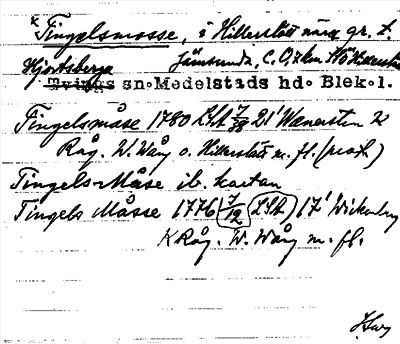 Tingelsmosse, i Hillerslätt nära gr. t.
Hjortsberga Jämsunda, C. 0,7 km NO Hillerslätt
Tvings sn. Medelstads hd. Blek. l.
Tingelsmåse 1780 LSA 7/38 21' Wanersten
Råg. W. Wång o. Hillerslätt m. fl. (prot.)
Tingels Måse ib. kartan
Tingels Måsse 1776 7/12 LSA 17' Wickenberg
K Råg. W. Wång m. fl.